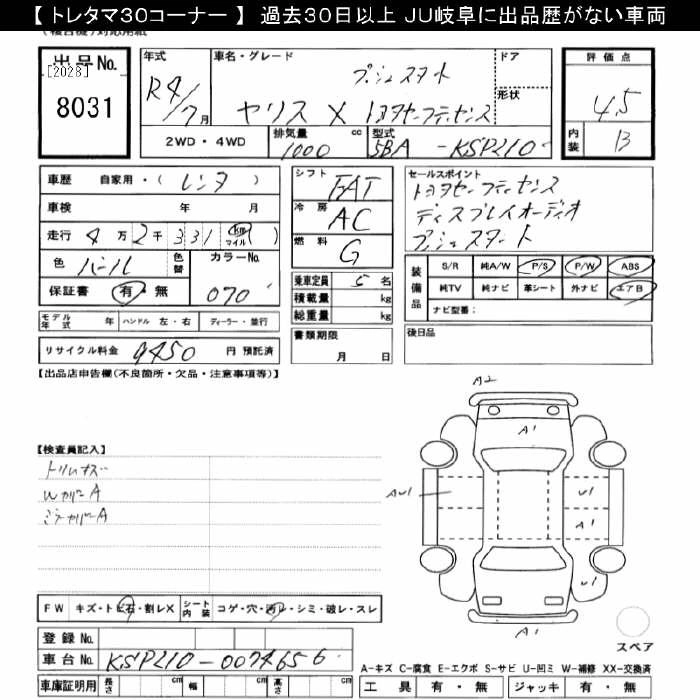 【 トレタマ30コーナー 】 過去30日以上 JU岐阜に出品歴がない車両
出品No.
[2028]
8031
年式
R4/7月
車名・グレード
プッシュスタート
ヤリス X トヨタセーフティセンス
ドア
形状
評価点
4.5
内装
B
2WD・4WD
排気量
1000 cc
型式
5BA-KSP210
車歴 自家用・(レンタ)
車検 年 月
走行 4万2千331 (km マイル)
色 パール
色替
カラーNo.
070
保証書 有・無
モデル年式 年 ハンドル 左・右 ディーラー・並行
リサイクル料金 9450 円 預託済
シフト
FAT
冷房
AC
燃料
G
乗車定員 5 名
積載量 kg
総重量 kg
書類期限
月 日
セールスポイント
トヨタセーフティセンス
ディスプレイオーディオ
プッシュスタート
装備品
S/R 純A/W P/S P/W ABS
純TV 純ナビ 革シート 外ナビ エアB
ナビ型番:
後日品
【出品店申告欄(不良箇所・欠品・注意事項等)】
【検査員記入】
トリムキズ
WカバーA
ミラーカバーA
A2
A1
AU1
U1
A1
U1
A1
スペア
FW キズ・トビ石・割レX
シート内装 コゲ・穴・汚レ・シミ・破レ・スレ
登録No.
車台No. KSP210-0074656
車庫証明用 長さ cm 幅 cm 高さ cm
A-キズ C-腐食 E-エクボ S-サビ U-凹ミ W-補修 XX-交換済
工具 有・無 ジャッキ 有・無